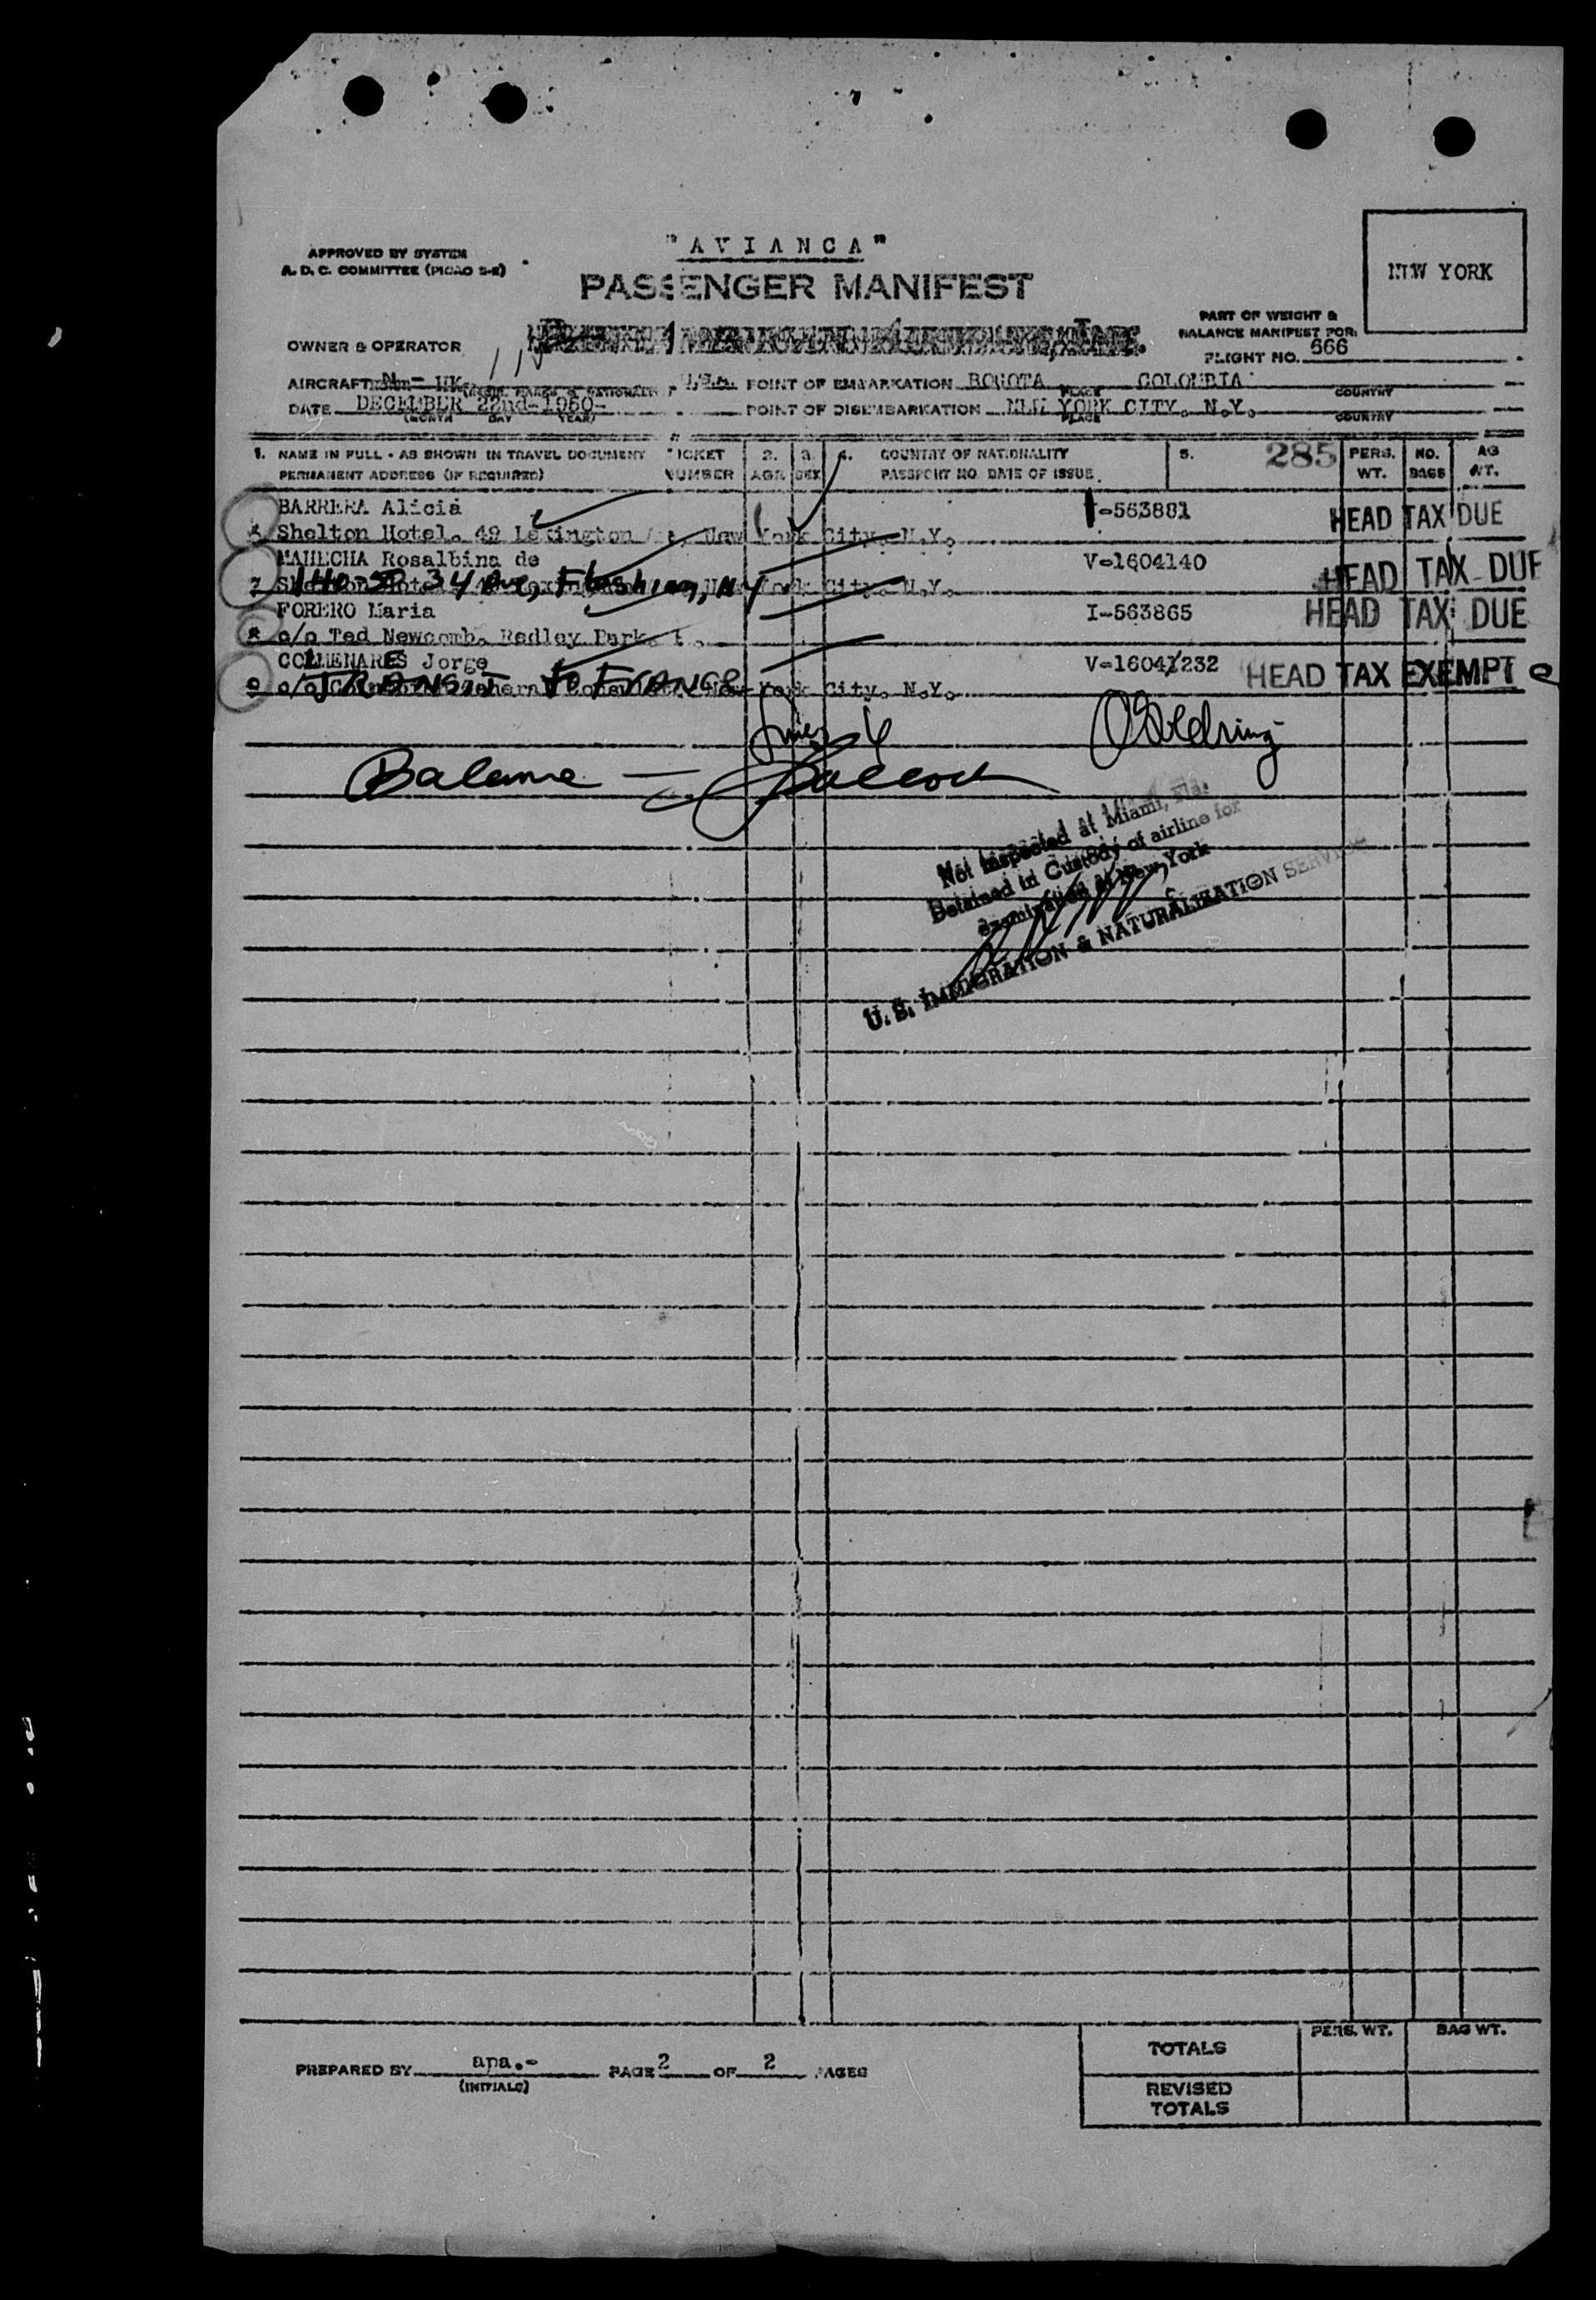 "AVIANCA"
APPROVED BY SYSTEM
A. D. C. COMMITTEE (PICAO S-E)
PASSENGER MANIFEST
NEW YORK
PART OF WEIGHT &
BALANCE MANIFEST FOR:
OWNER & OPERATOR
FLIGHT NO. 666
AIRCRAFT N - HK POINT OF EMBARKATION BOGOTA, COLOMBIA
PLACE COUNTRY
DATE DECEMBER 22nd-1950- POINT OF DISEMBARKATION NEW YORK CITY. N.Y.
(MONTH DAY YEAR) PLACE COUNTRY
1. NAME IN FULL - AS SHOWN IN TRAVEL DOCUMENT TICKET 2. 3. 4. COUNTRY OF NATIONALITY 5. 285 PERS. NO. AG
PERMANENT ADDRESS (IF REQUIRED) NUMBER AGE SEX PASSPORT NO. DATE OF ISSUE. WT. BAGS WT.
BARRERA Alicia I-563881 HEAD TAX DUE
Shelton Hotel. 49 Lexington New York City. N.Y.
MAHECHA Rosalbina de V-1604140 HEAD TAX DUE
7 34 Ave, Flushing, NY York City. N.Y.
FORERO Maria I-563865 HEAD TAX DUE
8 c/o Ted Newcomb. Radley Park.
COLMENARES Jorge V-1604/232 HEAD TAX EXEMPT
9 c/o TRANSIT to FRANCE York City. N.Y.
Balance —
Not Inspected at Miami, Fla.
Detained in Custody of airline for
examination at New York
U. S. IMMIGRATION & NATURALIZATION SERVICE
PREPARED BY apa.- PAGE 2 OF 2 PAGES
(INITIALS)
PERS. WT. BAG WT.
TOTALS
REVISED
TOTALS